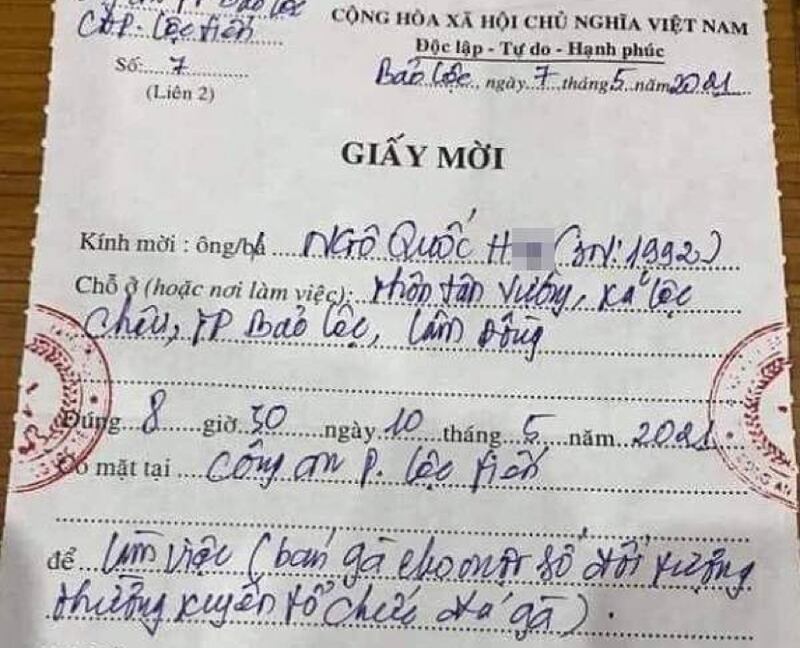 TP Bảo Lộc
CAP. Lộc Tiến
CỘNG HÒA XÃ HỘI CHỦ NGHĨA VIỆT NAM
Độc lập - Tự do - Hạnh phúc
Số: 7
(Liên 2)
Bảo Lộc, ngày 7 tháng 5 năm 2021
GIẤY MỜI
Kính mời : ông/bà NGÔ QUỐC H (SN: 1992)
Chỗ ở (hoặc nơi làm việc): thôn Tân Vượng, xã Lộc
Châu, TP Bảo Lộc, Lâm Đồng
Đúng 8 giờ 30 ngày 10 tháng 5 năm 2021
Có mặt tại Công an P. Lộc Tiến
để làm việc (bán gà cho một số đối tượng
thường xuyên tổ chức đá gà).